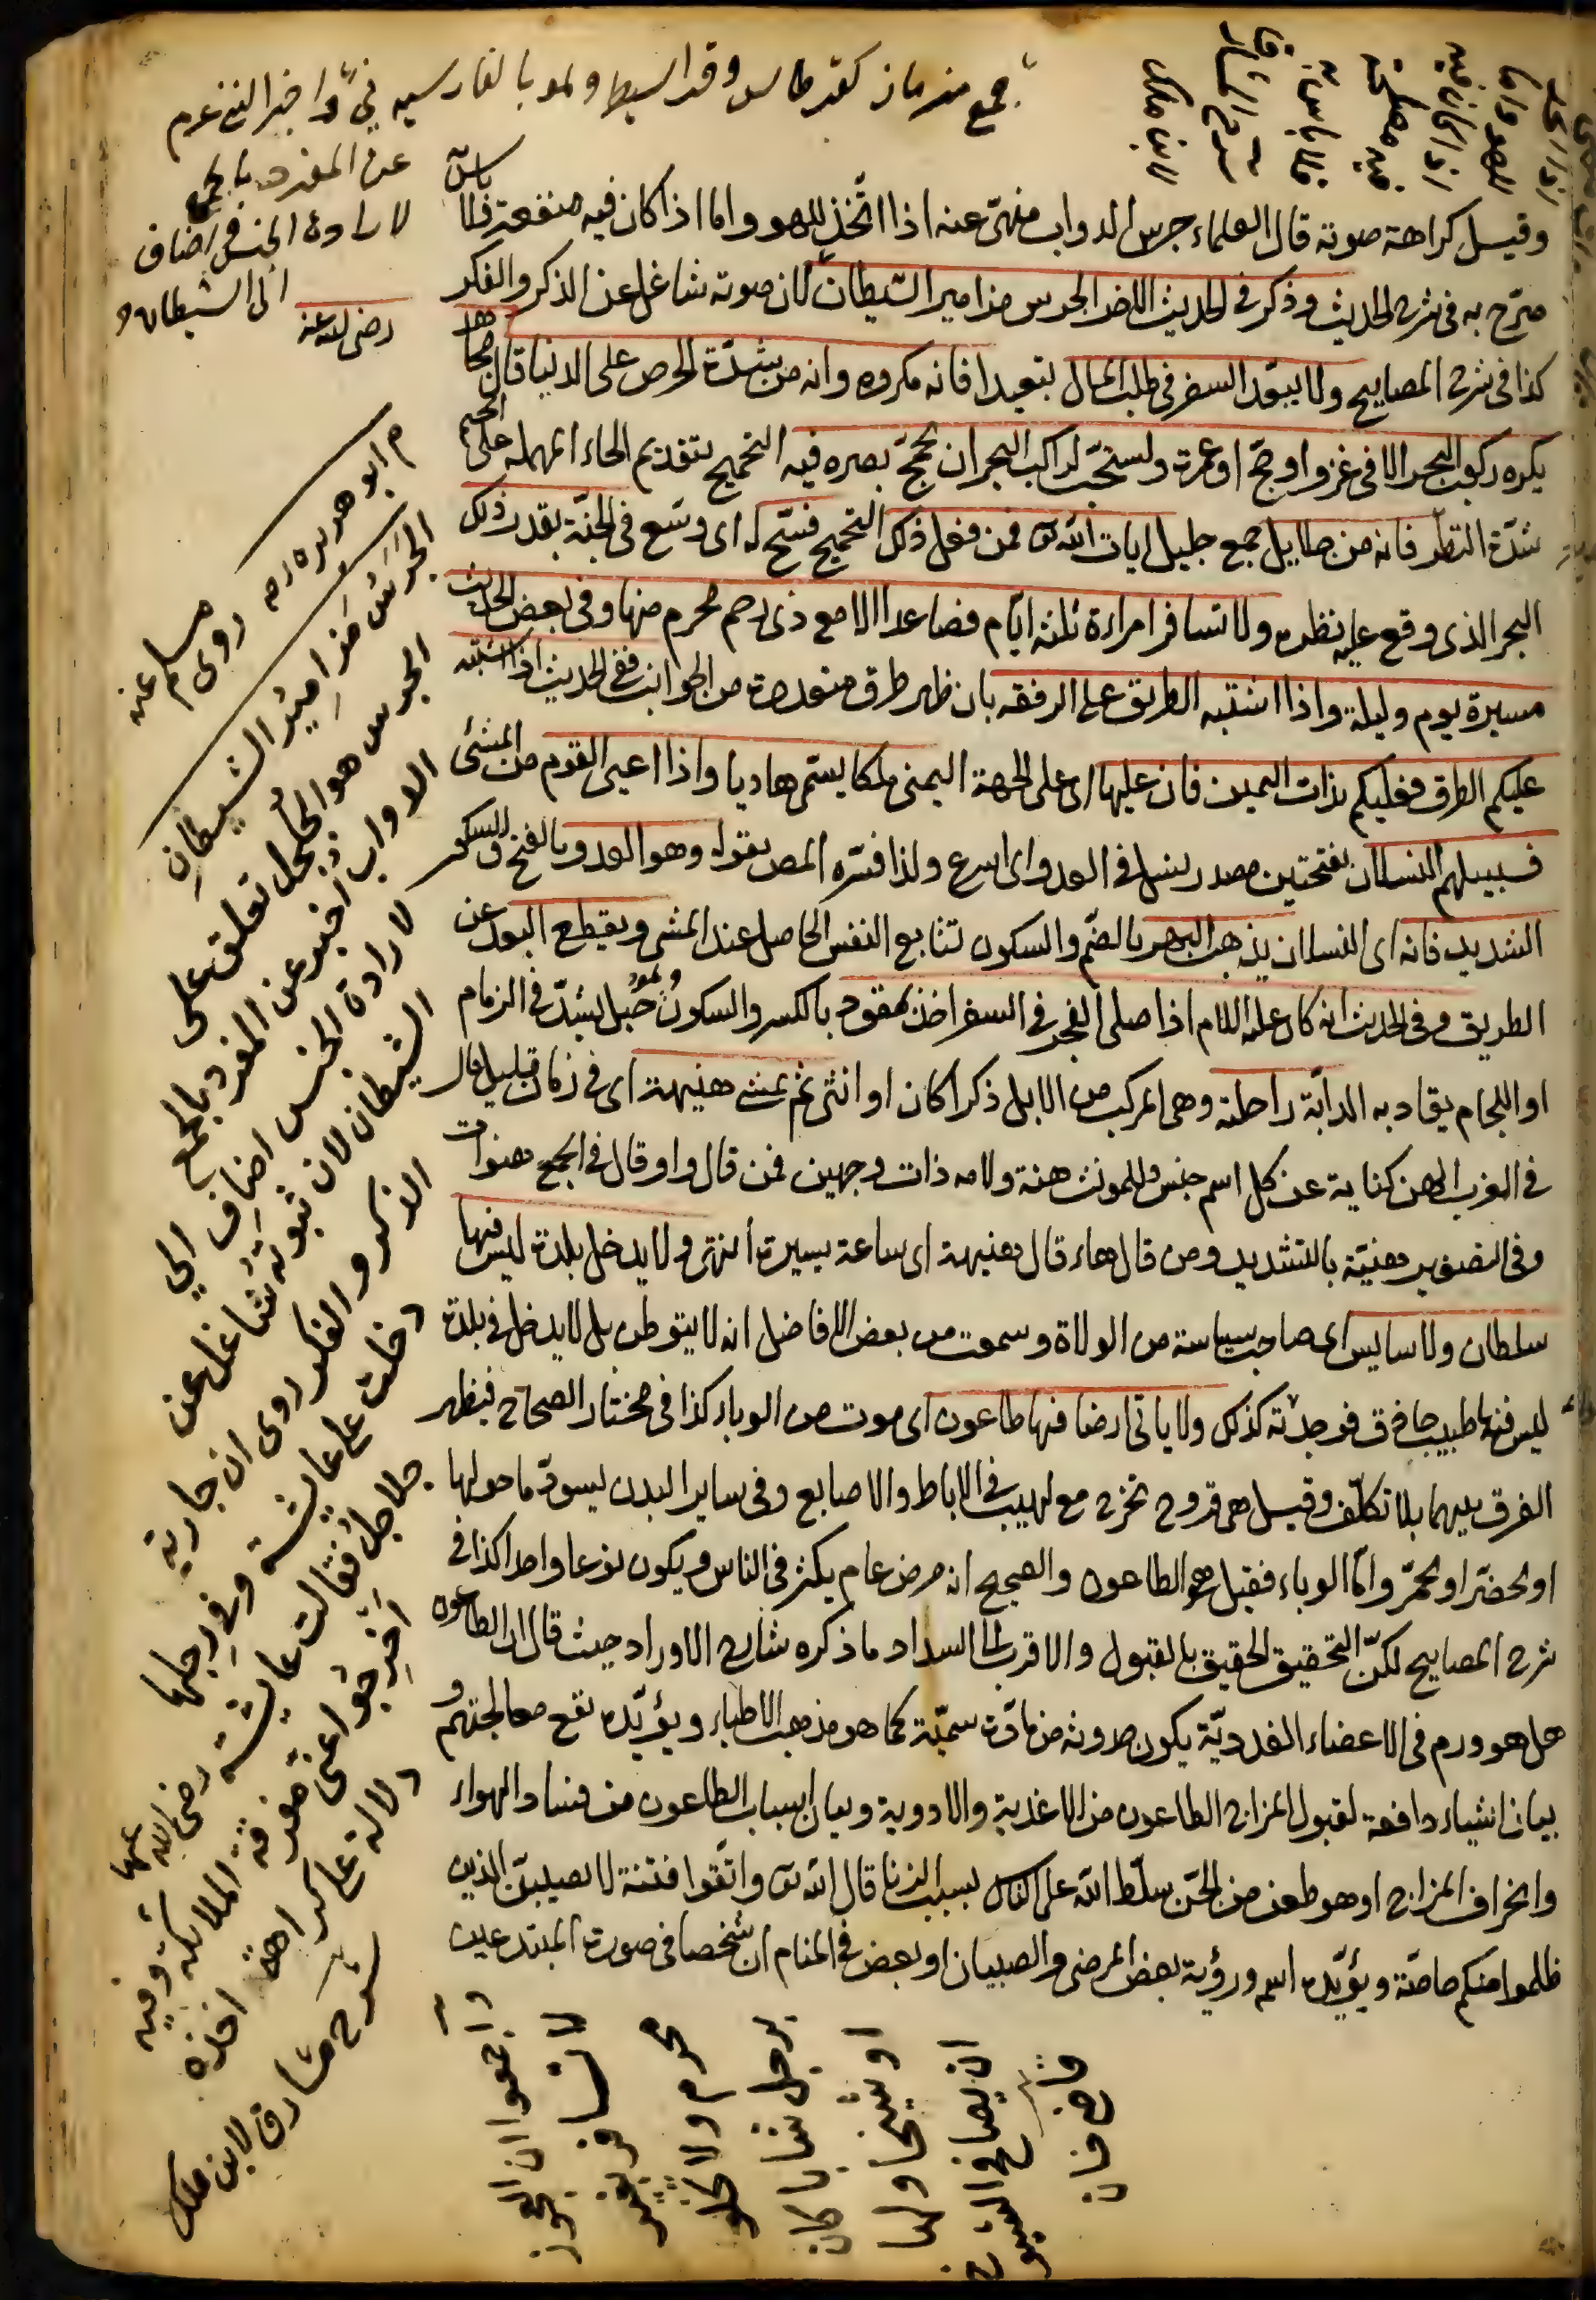 جمع مزمار كقرطاس وقد اسيط ولهو بالفارسية ني واخبر النبي عم
عن المفرد بالجمع
لارادة الجنس اضاف
الى الشيطان
رضي الله عنه
وقيل كراهة صوته قال العلماء جرس الدواب منهىّ عنه اذا اتّخذ للهو واما اذا كان فيه منفعة فلا بأس
صرّح به فى شرح الحديث وذكر فى الحديث الاخر الجرس مزامير الشيطان لان صوته شاغل عن الذكر والفكر
كذا فى شرح المصابيح ولا يبعّد السفر فى طلب المال بتعيدا فانه مكروه وانه من شدّة الحرص على الدنيا قال مجاهد
يكره ركوب البحر الا فى غزو او حجّ او عمرة ويستحبّ لراكب البحر ان يحمّج بصره فيه التحميج بتقديم الحاء المهملة على الجيم
شدّة النظر فانه من جلايل جمع جليل ايات الله تع فمن فعل ذلك التحميج فسّح له اى وسّع فى الجنّة بقدر ذلك
البحر الذى وقع عليه نظره ولا تسافر امراءة ثلثة ايّام فصاعدا الا مع ذى رحم محرم منها وفى بعض الحديث
مسيرة يوم وليلة واذا اشتبه الطريق على الرفقة بان ظهر طرق متعددة من الجوانب ففى الحديث اذا اشتبه
عليكم الطرق فعليكم بذات اليمين فان عليها اى على الجهة اليمنى ملكا يسمّى هاديا واذا اعيى القوم من المشى
فسبيلهم النسلان بفتحتين مصدر ينسل فى العدو اى اسرع ولذا فسّره المص بقوله وهو العدو بالفتح والسكون
الشديد فانه اى النسلان يذهب البهر بالضّم والسكون تتابع النفس الحاصل عند المشى ويقطع البعد عن
الطريق وفى الحديث انه كان عليه السلام اذا صلى الفجر فى السفر اخذ بمقود بالكسر والسكون حبل يشدّ فى الزمام
او اللجام يقاد به الدابّة راحلته وهى المركب من الابل ذكرا كان او انثى ثم يمشى هنيهة اى فى زمان قليل قال
فى المغرب الهن كناية عن كل اسم جنس وللمونث هنة ولامه ذات وجهين فمن قال واو قال فى الجمع هنوات
وفى التصغير هنيّة بالتشديد ومن قال هاء قال هنيهة اى ساعة يسيرة انتهى ولا يدخل بلدة ليس فيها
سلطان ولا سايس اى صاحب سياسة من الولاة وسمعت من بعض الافاضل انه لا يتوطن بل لا يدخل فى بلدة
ليس فيها طبيب حاذق فوجدته كذلك ولا ياتى ارضا فيها طاعون اى موت من الوباء كذا فى مختار الصحاح فيظهر
الفرق بينهما بلا تكلّف وقيل هى قروح تخرج مع لهيب فى الاباط والاصابع وفى ساير البدن يسودّ ما حولها
او يخضرّ او يحمّر وامّا الوباء فقيل هو الطاعون والصحيح انه مرض عام يكثر فى الناس ويكون نوعا واحدا كذا فى
شرح المصابيح لكنّ التحقيق الحقيق بالقبول والاقرب الى السداد ما ذكره شارح الاوراد حيث قال ان الطاعون
هل هو ورم فى الاعضاء الغدديّة يكون حدوثه من مادّة سميّة كما هو مذهب الاطباء ويؤيّده نفع معالجتهم و
بيان اشياء دافعة لقبول المزاج الطاعون من الاغذية والادوية وبيان اسباب الطاعون من فساد الهواء
وانحراف المزاج او هو طعن من الجّن سلّط الله على الناس بسبب الزنا قال الله تع واتّقوا فتنة لا تصيبنّ الذين
ظلموا منكم خاصّة ويؤيّده اسمه ورؤية بعض المرضى والصبيان او بعض فى المنام ان شخصا فى صورة المبتدعين
م ابو هريره رضه روى مسلم عنه
الجَرَسُ مَزاميرُ الشيطانِ
الجرس هو الجُلجُل تعلق على
الدواب اخبر عن المفرد بالجمع
لارادة الجنس اضاف الي
الشيطان لان صوته شاغل عن
الذكر والفكر روى ان جارية
دخلت على عايشة وفي رجلها
جلاجل فقالت عايشة رضي الله عنها
اَخرِجوا عنى مفرقة الملائكة وفيه
دلالة على كراهة اخذه
شرح مشارق لابن ملك
واجمعوا ان العجوز
لا تسافر بغير
محرم ولا تخلو
برجل شابا كان
او شيخا ولها
ان يصافح الشيوخ
قاضيخان